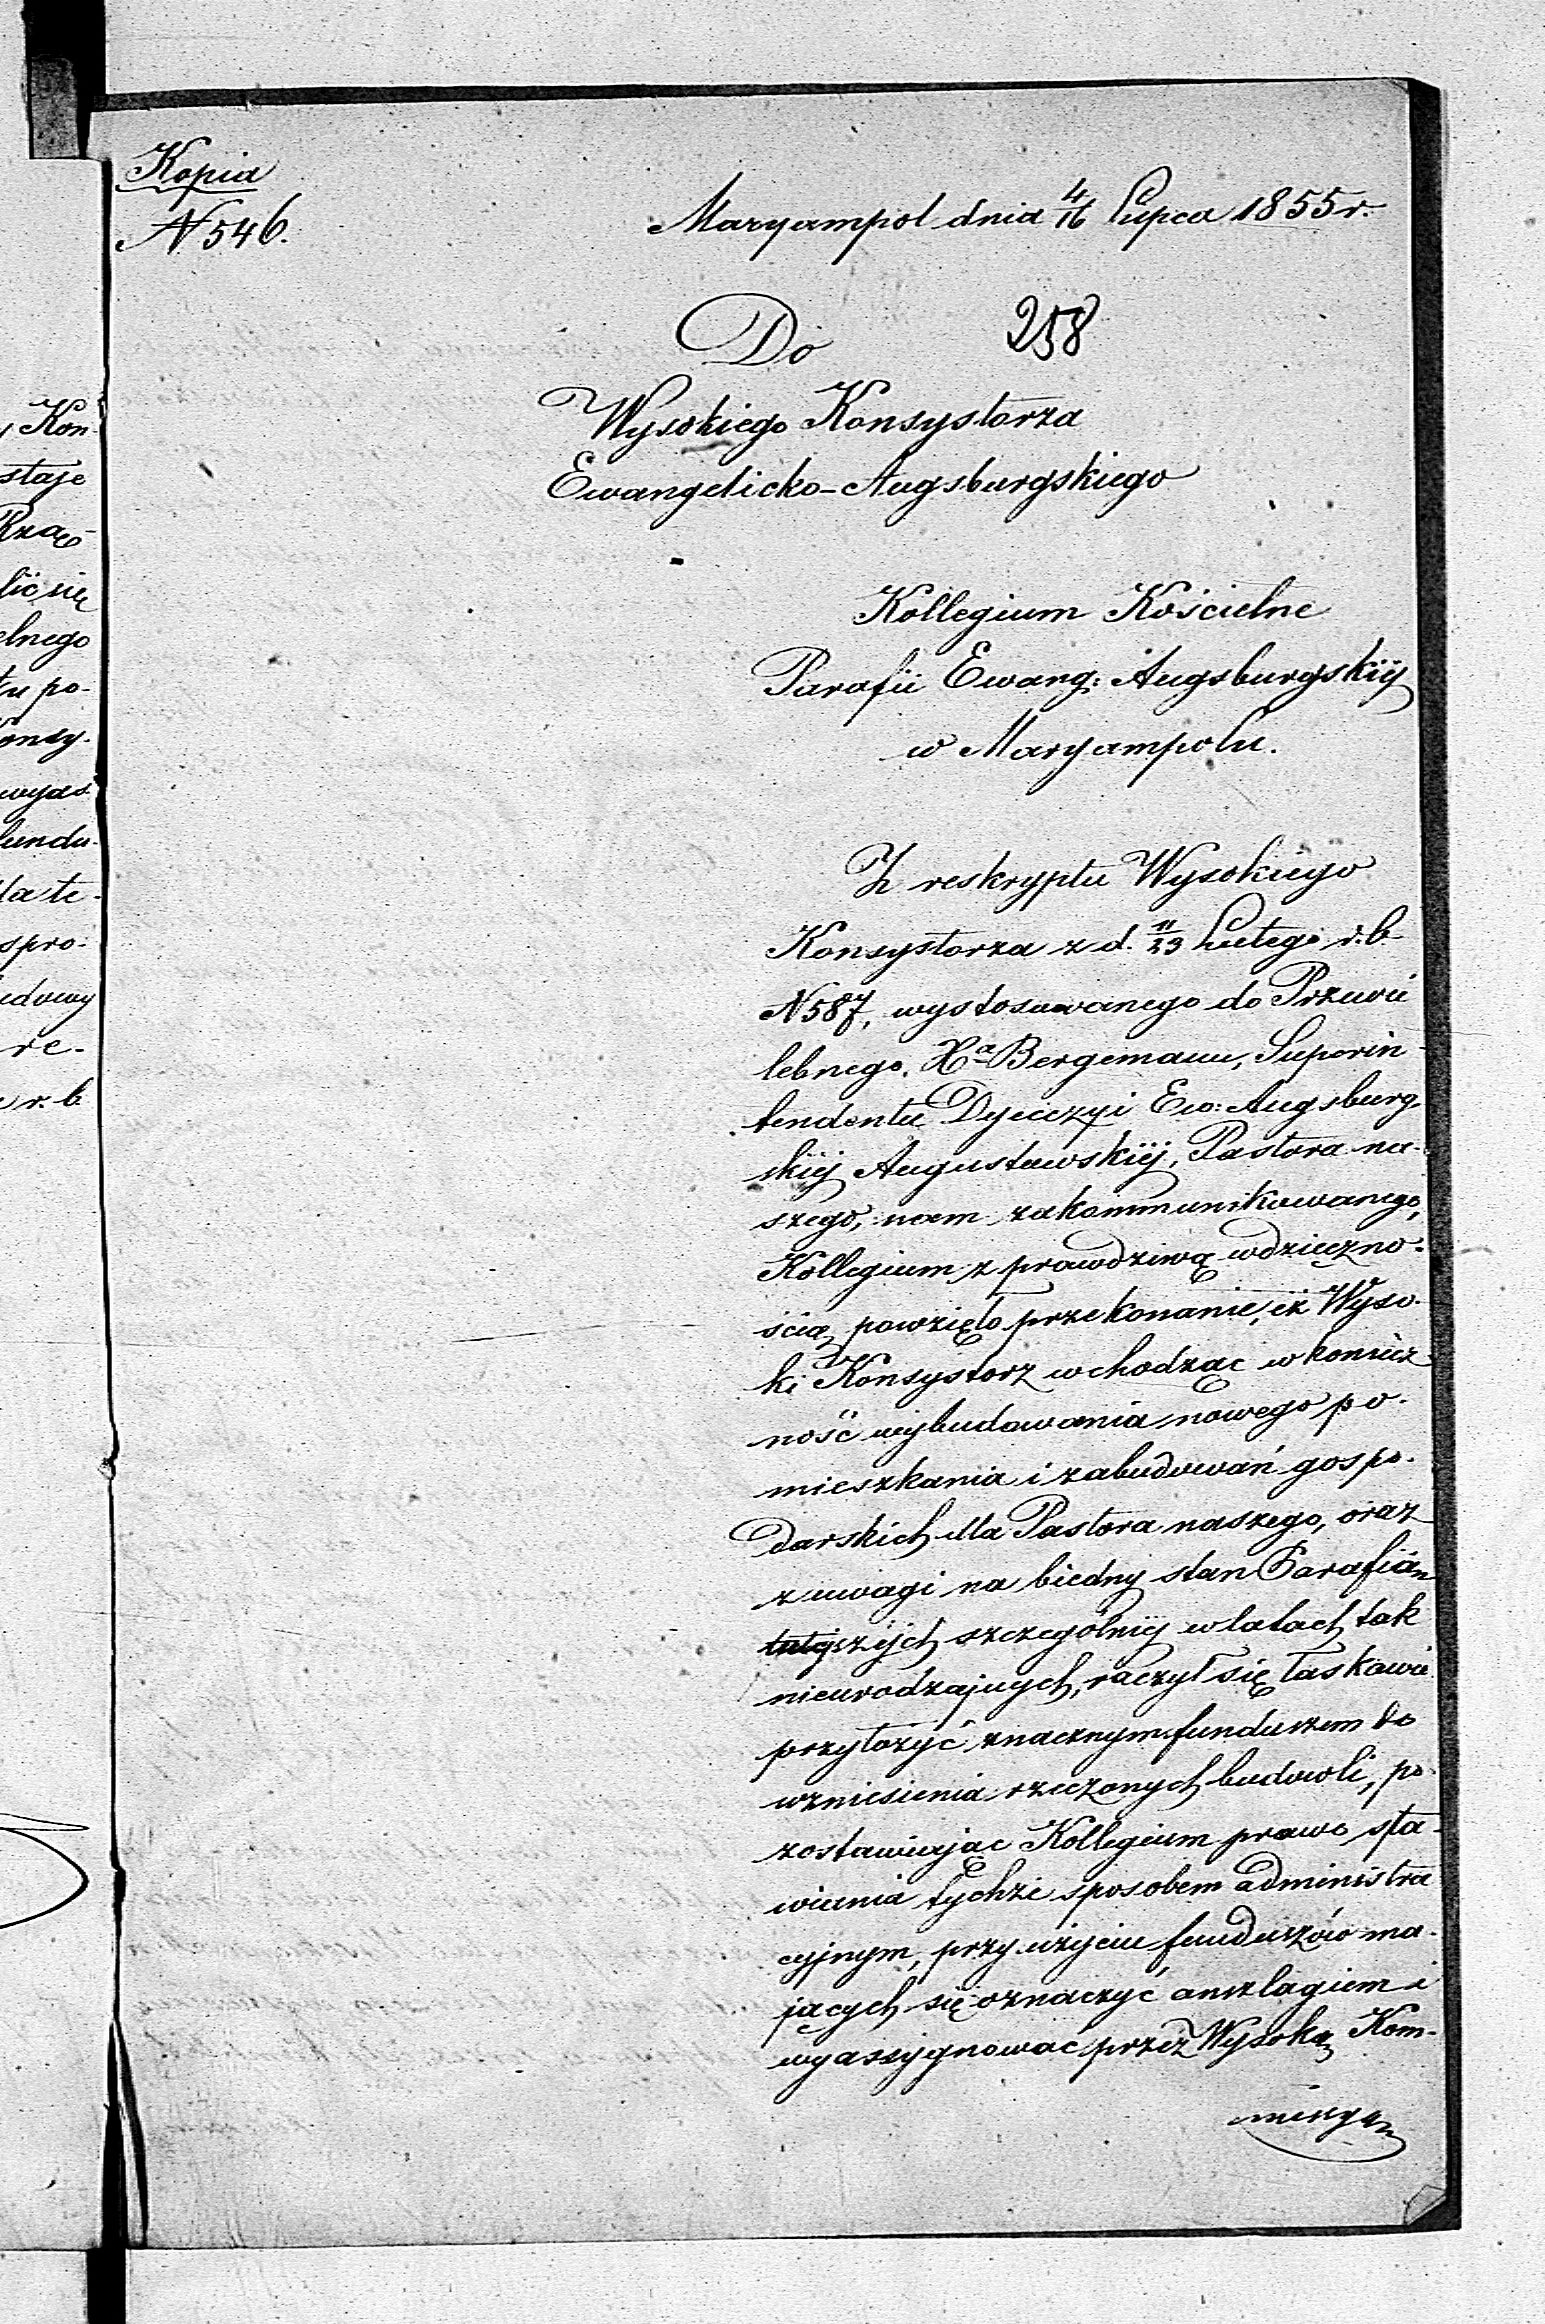 Kopia
N 546.
Maryampol dnia 4/16 Lipca 1855 r.
258
Do
Wysokiego Konsystorza
Ewangelicko-Augsburgskiego
Kollegium Kościelne
Parafii Ewang: Augsburgskiéj
w Maryampolu.
Z reskryptu Wysokiego
Konsystorza z d. 11/23 Lutego r. b.
N 587, wystosowanego do Przewie
lebnego Xa Bergemann, Superin-
tendenta Dyecezyi Ew: Augsburg
skiéj Augustowskiéj, Pastora na-
szego, nam zakommunikowanego,
Kollegium z prawdziwą wdzięczno-
ścią powzięło przekonanie, iż Wyso-
ki Konsystorz wchodząc w koniecz-
ność wybudowania nowego po-
mieszkania i zabudowań gospo-
darskich dla Pastora naszego, oraz
z uwagi na biedny stan Parafian
szych szczególniéj w latach tak
nieurodzajnych, raczył się łaskawie
przyłożyć znacznym funduszem do
wzniesienia rzeczonych budowli, po-
zostawiając Kollegium prawo sta-
wiania tychże sposobem administra
cyjnym, przy użyciu funduszów ma-
jących się oznaczyć anszlagiem i
wyassygnować przez Wysoką Kom-
missyą
Kon-
staje
Rzą-
lić się
elnego
łu po-
onsy-
wyas-
fundu-
dla te-
spro-
udowy
re-
r. b.